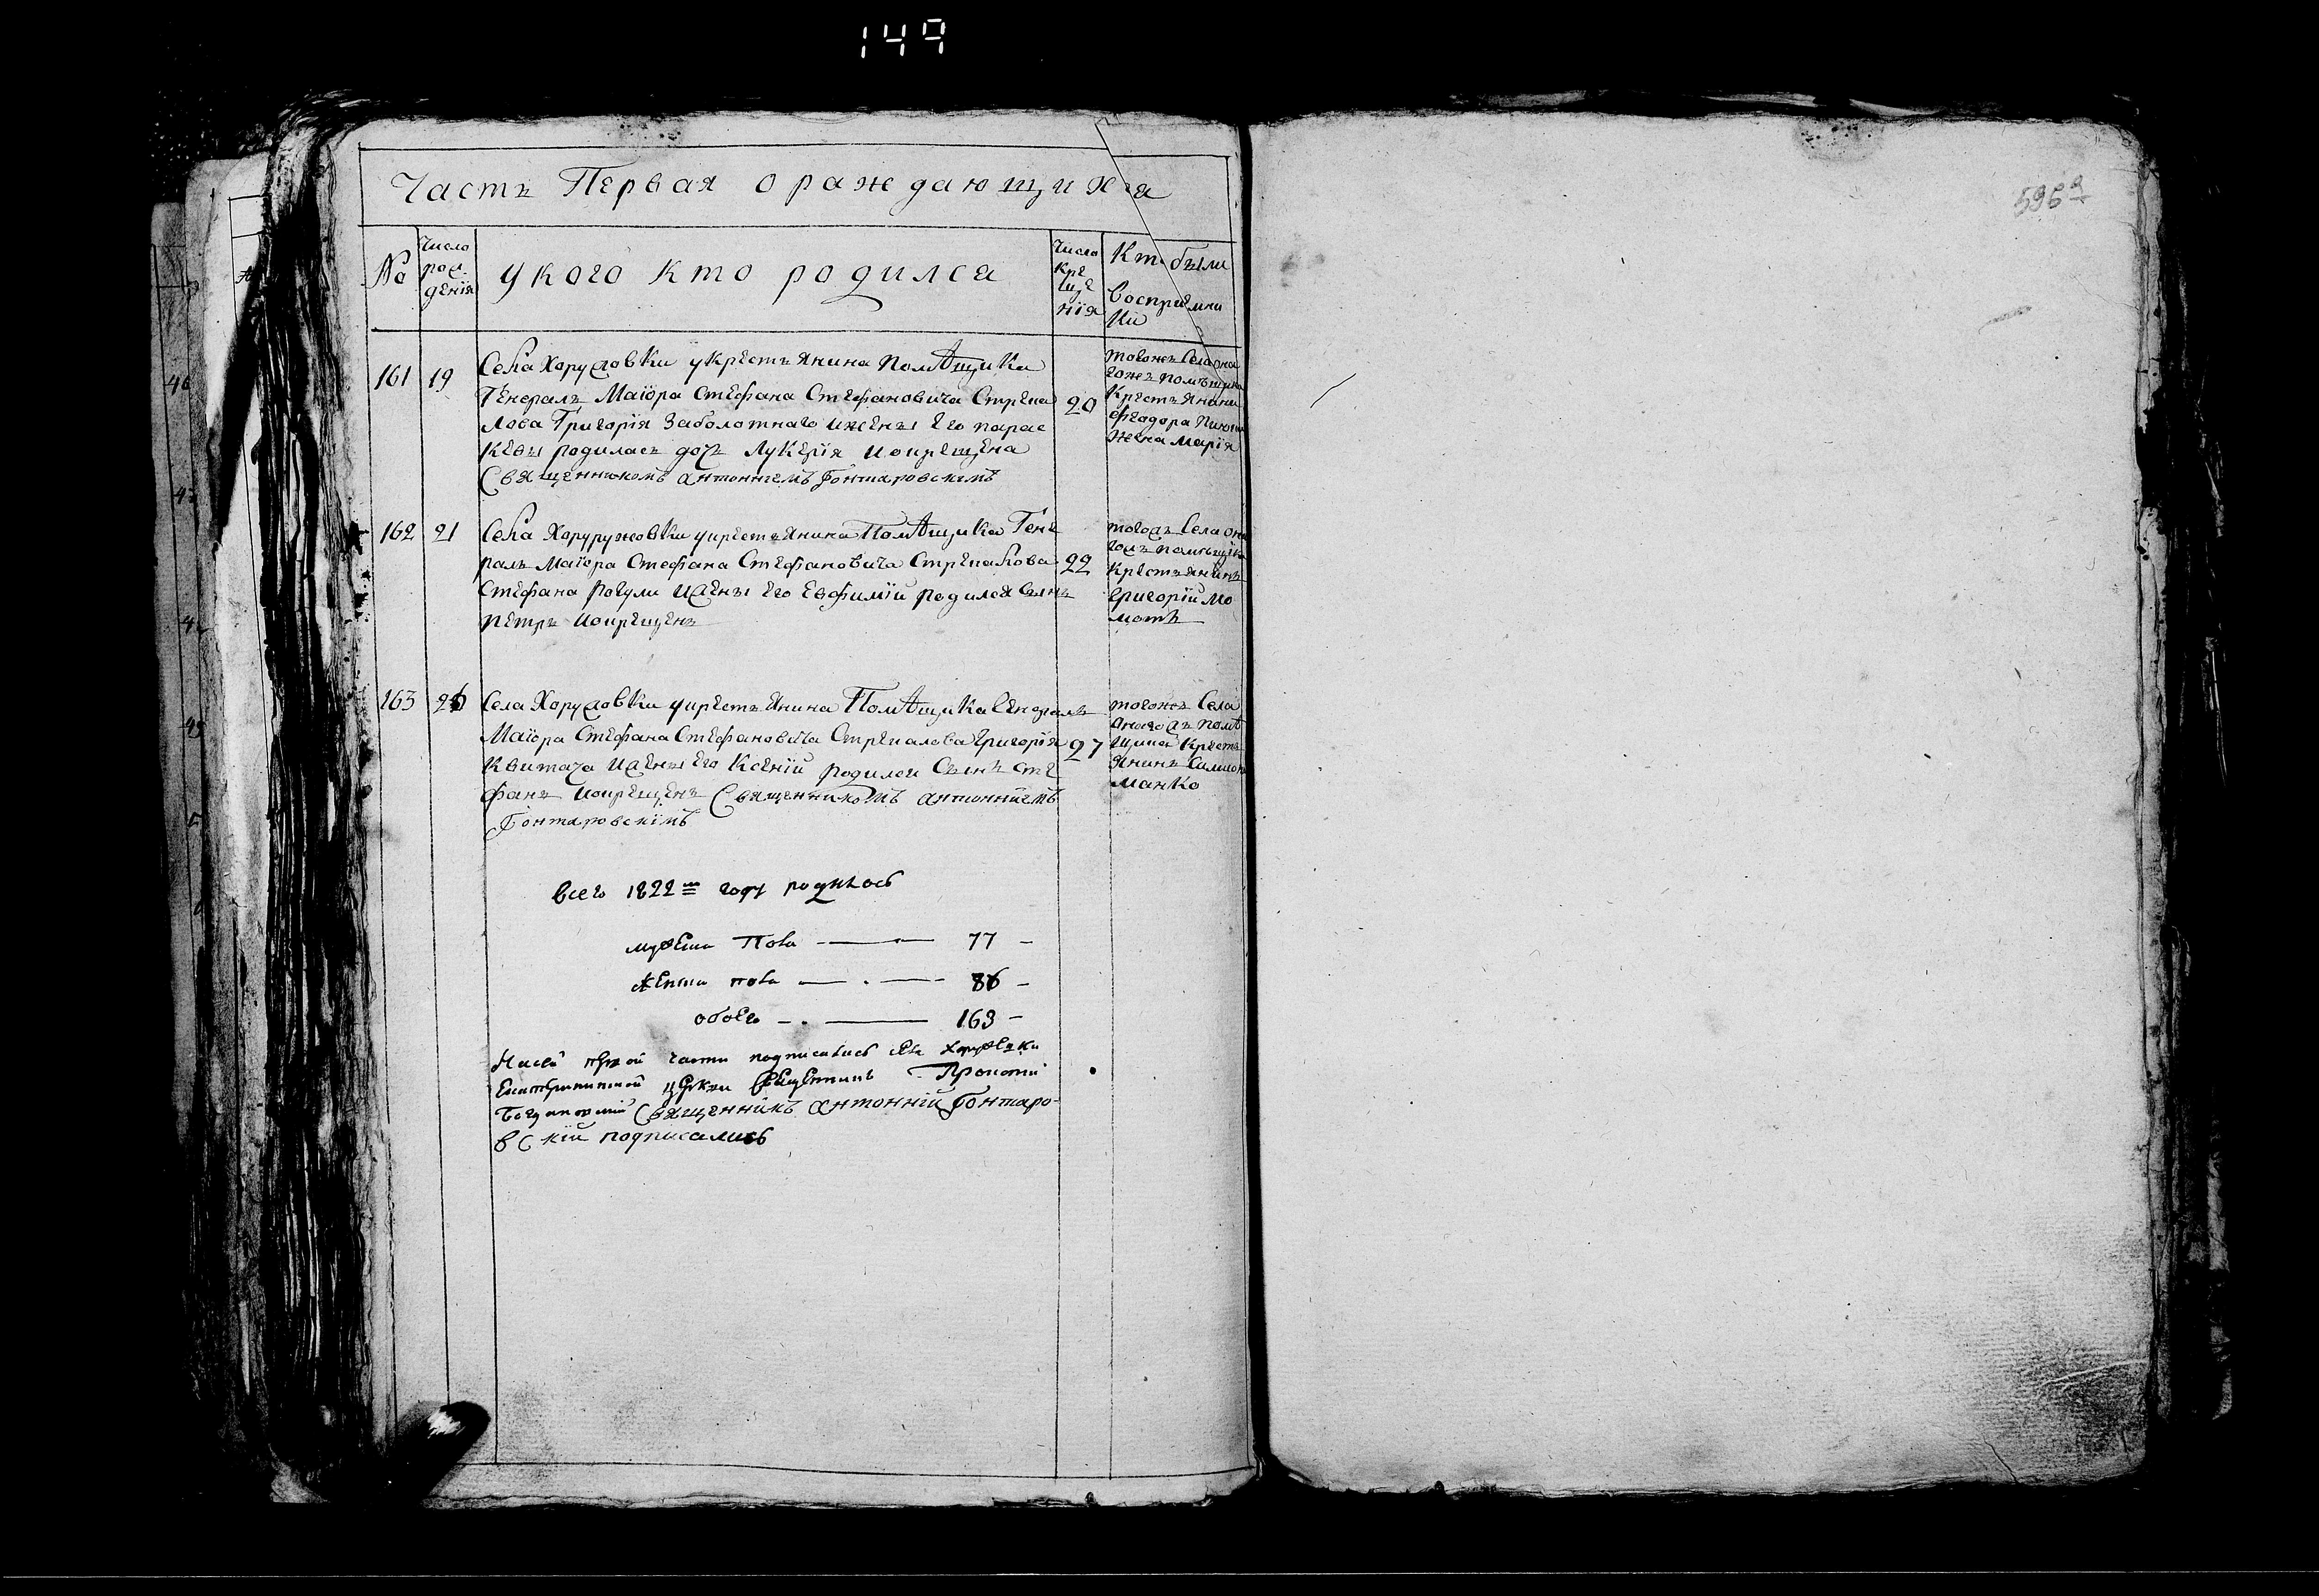 149
Часть Первая о раждающихся
596 а
№
Число
рож
денія
у кого кто родился
Число
кре
ще
нія
Кто были
Восприемни
ки
161 19
Села Хоружовки у крестьянина помѣщика
Генералъ Маіора Стефана Стефановича Стрепа
лова Григорія Заболотнаго и жены его Парас
кевы родилась дочь Лукерія и окрещена
Священникомъ Антоніемъ Гонтаровскимъ
20
тогожъ Села она
гожъ помѣщика
крестьянина
Феодора
жена Марія
162 21
Села Хоруружовки у крестьянина Помѣщика Гене
ралъ Маіора Стефана Стефановича Стрепалова
Стефана Рогули и жены его Евфиміи родился сынъ
Петръ и окрещенъ
22
тогожъ Села она
гожъ помѣщика
крестьянинъ
Григорій Мо
мотъ
163 26
Села Хоружовки у крестьянина Помѣщика Генералъ
Маіора Стефана Стефановича Стрепалова Григорія
Квитача и жены его Ксеніи родился Сынъ Сте
фанъ и окрещенъ Священникомъ Антоніемъ
Гонтаровскімъ
27
тогожъ Села
оногожъ помѣ
щика крестъ
янинъ Симионъ
Манко
всего 1822 году родилось
мужеска Пола 77
женска пола 86
обоего 163
На сей первой части подписались села Хоружовки
церкви Священникъ
Священникъ Антонній Гонтаро-
вскій подписались